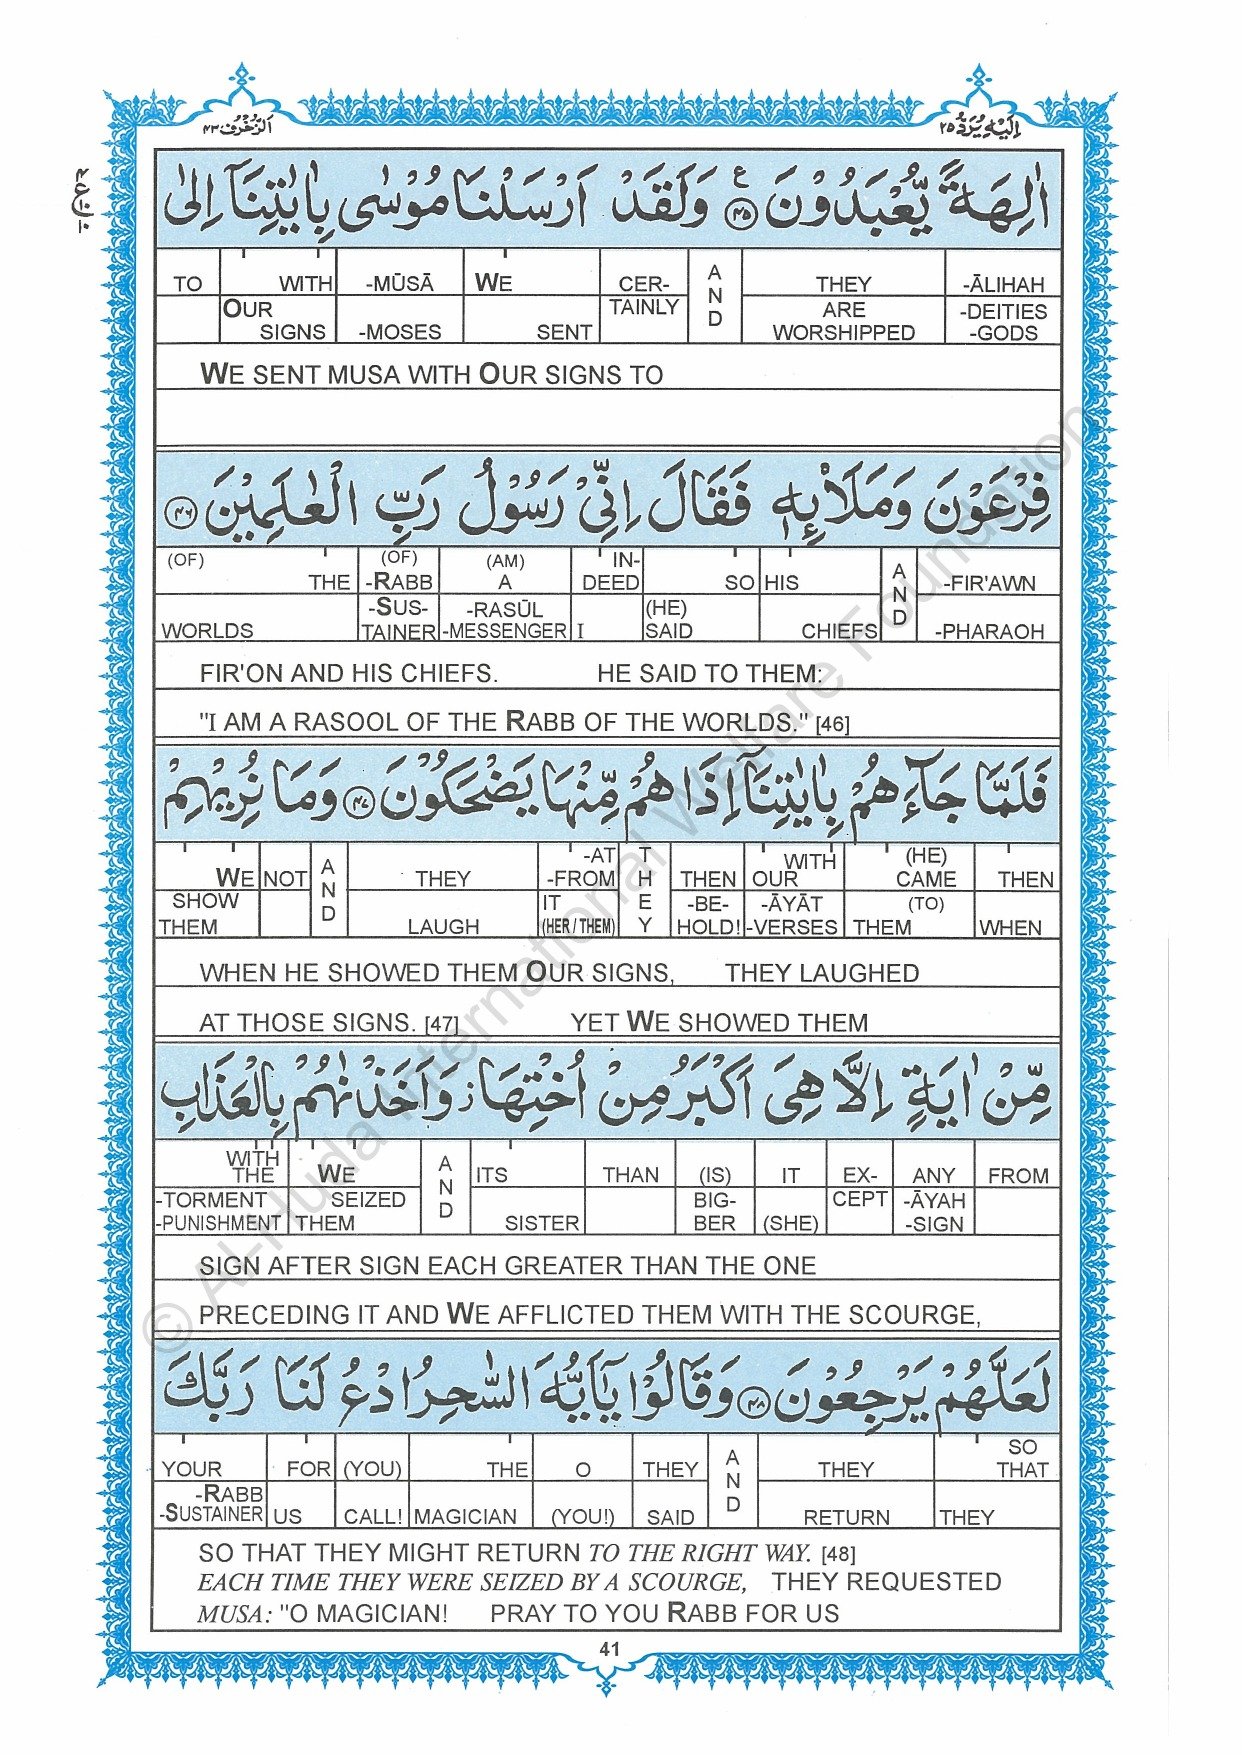 الزخرف ٤٣
اليه يرد ٢٥
اٰلِهَةً يُّعْبَدُوْنَ ﴿٤٥﴾ ع وَلَقَدْ اَرْسَلْنَا مُوْسٰى بِاٰيٰتِنَاۤ اِلٰى
TO WITH -MŪSĀ WE CER- AND THEY -ĀLIHAH
OUR ARE -DEITIES
SIGNS -MOSES SENT TAINLY WORSHIPPED -GODS
WE SENT MUSA WITH OUR SIGNS TO
فِرْعَوْنَ وَمَلَا۟ئِهٖ فَقَالَ اِنِّىْ رَسُوْلُ رَبِّ الْعٰلَمِيْنَ ﴿٤٦﴾
(OF) (OF) (AM) IN-
THE -RABB A DEED SO HIS AND -FIR'AWN
-SUS- -RASŪL (HE)
WORLDS TAINER -MESSENGER I SAID CHIEFS -PHARAOH
FIR'ON AND HIS CHIEFS. HE SAID TO THEM:
"I AM A RASOOL OF THE RABB OF THE WORLDS." [46]
فَلَمَّا جَآءَهُمْ بِاٰيٰتِنَاۤ اِذَا هُمْ مِّنْهَا يَضْحَكُوْنَ ﴿٤٧﴾ وَمَا نُرِيْهِمْ
-AT WITH (HE)
WE NOT AND THEY -FROM THEY THEN OUR CAME THEN
SHOW IT -BE- -ĀYĀT (TO)
THEM LAUGH (HER/THEM) HOLD! -VERSES THEM WHEN
WHEN HE SHOWED THEM OUR SIGNS, THEY LAUGHED
AT THOSE SIGNS. [47] YET WE SHOWED THEM
مِّنْ اٰيَةٍ اِلَّا هِىَ اَكْبَرُ مِنْ اُخْتِهَا ز وَاَخَذْنٰهُمْ بِالْعَذَابِ
WITH
THE WE AND ITS THAN (IS) IT EX- ANY FROM
-TORMENT SEIZED BIG- CEPT -ĀYAH
-PUNISHMENT THEM SISTER BER (SHE) -SIGN
SIGN AFTER SIGN EACH GREATER THAN THE ONE
PRECEDING IT AND WE AFFLICTED THEM WITH THE SCOURGE,
لَعَلَّهُمْ يَرْجِعُوْنَ ﴿٤٨﴾ وَقَالُوْا يٰۤاَيُّهَ السّٰحِرُ ادْعُ لَنَا رَبَّكَ
SO
YOUR FOR (YOU) THE O THEY AND THEY THAT
-RABB
-SUSTAINER US CALL! MAGICIAN (YOU!) SAID RETURN THEY
SO THAT THEY MIGHT RETURN TO THE RIGHT WAY. [48]
EACH TIME THEY WERE SEIZED BY A SCOURGE, THEY REQUESTED
MUSA: "O MAGICIAN! PRAY TO YOU RABB FOR US
41
© Al-Huda International Welfare Foundation